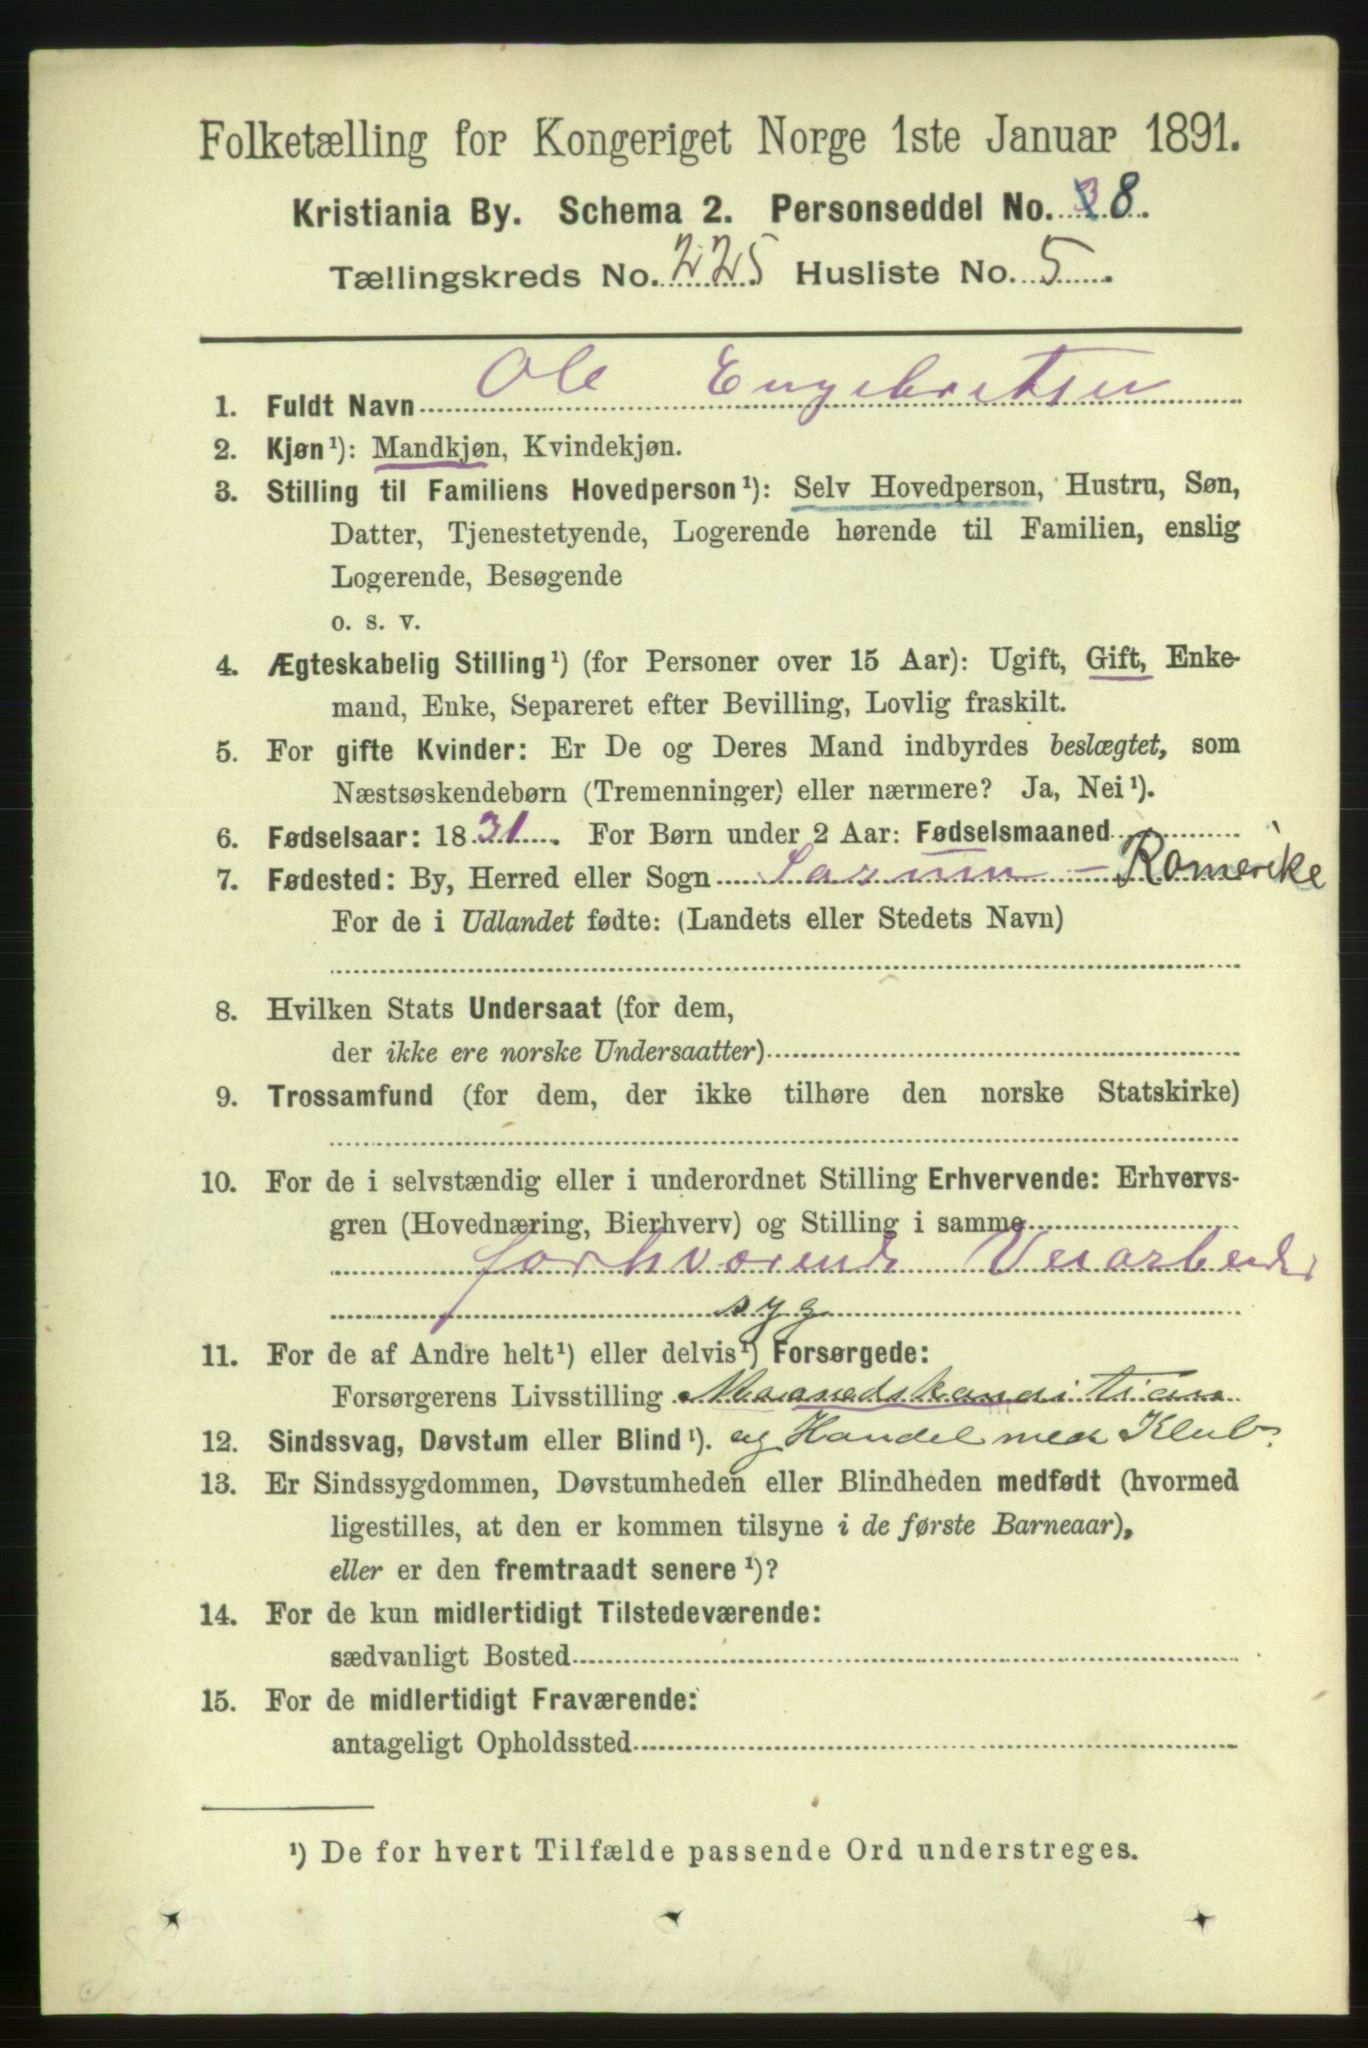 Folketælling for Kongeriget Norge 1ste Januar 1891.
Kristiania By. Schema 2. Personseddel No. 8.
Tællingskreds No. 225 Husliste No. 5.
1. Fuldt Navn Ole Engebretsen
2. Kjøn¹): Mandkjøn, Kvindekjøn.
3. Stilling til Familiens Hovedperson¹): Selv Hovedperson, Hustru, Søn,
Datter, Tjenestetyende, Logerende hørende til Familien, enslig
Logerende, Besøgende
o. s. v.
4. Ægteskabelig Stilling¹) (for Personer over 15 Aar): Ugift, Gift, Enke-
mand, Enke, Separeret efter Bevilling, Lovlig fraskilt.
5. For gifte Kvinder: Er De og Deres Mand indbyrdes beslægtet, som
Næstsøskendebørn (Tremenninger) eller nærmere? Ja, Nei¹).
6. Fødselsaar: 1831. For Børn under 2 Aar: Fødselsmaaned
7. Fødested: By, Herred eller Sogn Sørum - Romerike
For de i Udlandet fødte: (Landets eller Stedets Navn)
8. Hvilken Stats Undersaat (for dem,
der ikke ere norske Undersaatter)
9. Trossamfund (for dem, der ikke tilhøre den norske Statskirke)
10. For de i selvstændig eller i underordnet Stilling Erhvervende: Erhvervs-
gren (Hovednæring, Bierhverv) og Stilling i samme
forhværende Veiarbeider
syg
11. For de af Andre helt¹) eller delvis¹) Forsørgede:
Forsørgerens Livsstilling
12. Sindssvag, Døvstum eller Blind¹). og Handel med Klub.
13. Er Sindssygdommen, Døvstumheden eller Blindheden medfødt (hvormed
ligestilles, at den er kommen tilsyne i de første Barneaar),
eller er den fremtraadt senere¹)?
14. For de kun midlertidigt Tilstedeværende:
sædvanligt Bosted
15. For de midlertidigt Fraværende:
antageligt Opholdssted
¹) De for hvert Tilfælde passende Ord understreges.